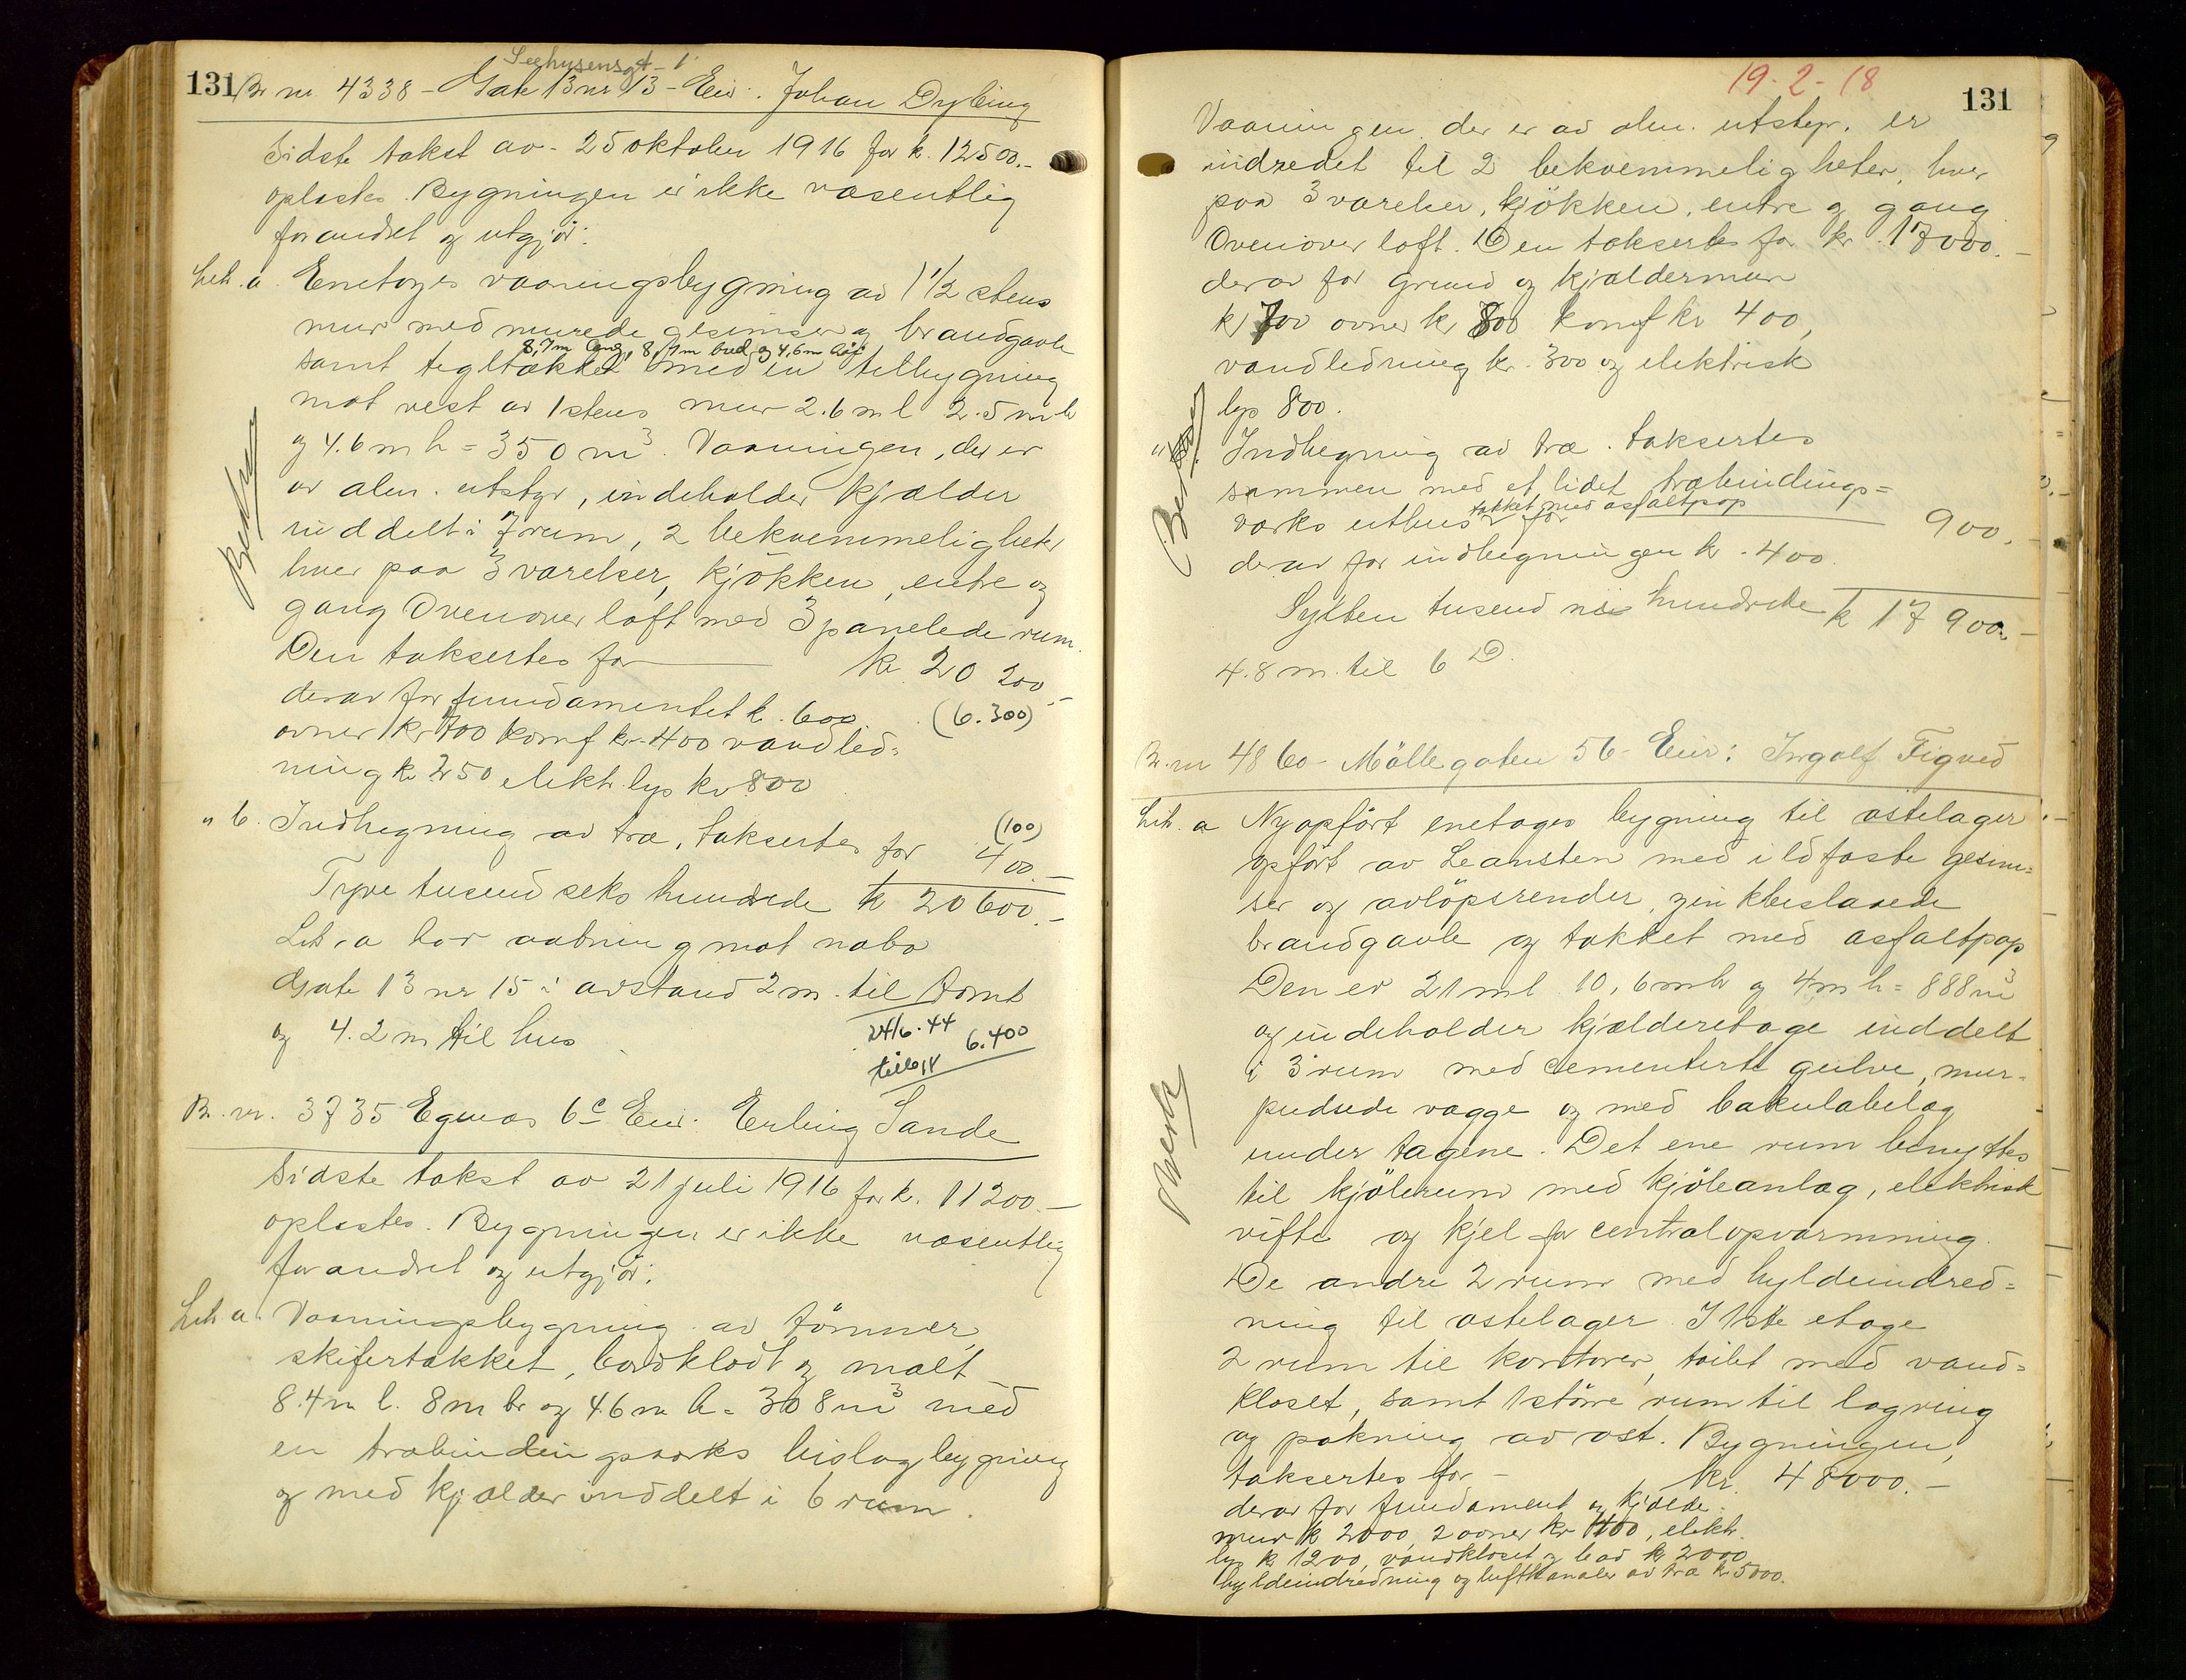 131
Seehusensgt - 1
Br nr. 4338 - Gate 13 nr 13 - Eier: Johan Dybing
Sidste takst av - 25 oktober 1916 for k. 12500.-
oplæstes. Bygningen er ikke væsentlig
forandret og utgjør:
Lit. a. Enetages vaaningsbygning av 1 1/2 stens
mur med murede gesimser og brandgavle
8,7m lang, 8,7m bred og 4,6m høi
samt tegltækket med en tilbygning
mot vest av 1 stens mur 2.6 m l 2.5 m b
og 4.6 m h = 350 m3. Vaaningen, der er
av alm. utstyr, indeholder kjælder
inddelt i 7 rum, 2 bekvemmeligheter
hver paa 3 værelser, kjøkken, entre og
gang Ovenover loft med 3 panelede rum.
Den taksertes for kr. 20 200.-
derav for fundamentet k. 600. (6.300)
ovner kr 700 komf kr 400 vandled=
ning kr 250 elektr. lys kr 800
" b. Indhegning av træ, taksertes for 400.-
(100)
Tyve tusend seks hundrede k 20 600.-
Lit. a har aabning mot nabo
Gate 13 nr 15 i avstand 2 m. til tomt
og 4.2 m til hus
24/6.44 6.400
Br. nr. 3735 Egenæs 6c Eier: Erling Sande
Sidste takst av 21 juli 1916 for k. 11200.-
oplæstes. Bygningen er ikke væsentlig
forandret og utgjør:
Lit a. Vaaningsbygning av tømmer,
skifertækket, bordklædt og malt
8.4 m l. 8 m br og 4.6 m h = 308 m3 med
en træbindingsværks bislagbygning
og med kjælder inddelt i 6 rum.
19-2-18
131
Vaaningen der er av alm. utstyr. er
indredet til 2 bekvemmeligheter, hver
paa 3 værelser, kjøkken, entre og gang
Ovenover loft. Den taksertes for kr. 17000.-
derav for grund og kjældermur
kr 700 ovner kr 800 komf kr 400,
vandledning kr. 300 og elektrisk
lys 800.
" Indhegning av træ. taksertes
sammen med et lidet træbindings=
tækket med asfaltpap
værks uthus for 900.-
derav for indhegningen kr. 400.
Sytten tusend ni hundrede k 17 900.-
4.8 m. til 6 D.
Br. nr 4860 - Møllegaten 56 - Eier: Ingolf Figved
Lit. a Nyopført enetages bygning til ostelager
opført av Leansten med ildfaste gesim=
ser og avløpsrender, zinkbeslaaede
brandgavle og tækket med asfaltpap
Den er 21 m l 10,6 m b og 4 m h = 888 m3
og indeholder kjælderetage inddelt
i 3 rum med cementerte gulve, mur-
pudsede vægge og med bakulabelæg
under tagene. Det ene rum benyttes
til kjølerum med kjøleanlæg, elektrisk
vifte og kjel for centralopvarmning.
De andre 2 rum med hyldeindred=
ning til ostelager. I 1ste etage
2 rum til kontorer, toilet med vand=
kloset, samt 1 større rum til lagring
og pakning av ost. Bygningen,
taksertes for - kr. 48000.-
derav for fundament og kjælder-
mur k 2000, 2 ovner kr 400, elektr.
lys kr 1200, vandkloset og bad kr 2000,
hyldeindredning og luftkanaler av træ kr 5000.